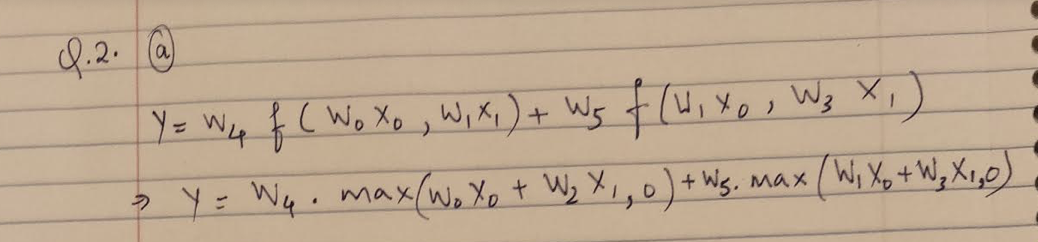 Q.2. (a)
Y = W₄ f ( W₀ X₀ , W₁ X₁ ) + W₅ f ( W₁ X₀ , W₃ X₁ )
⇒ Y = W₄ . max(W₀ X₀ + W₂ X₁ , 0) + W₅ . max (W₁ X₀ + W₃ X₁, 0)